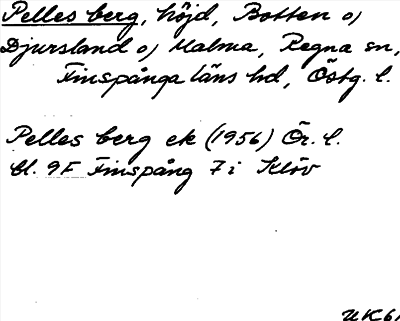 Pelles berg, höjd, Botten o)
Djursland o) Malma, Regna sn,
Finspånga läns hd, Östg. l.
Pelles berg ek (1956) Ör. l.
bl. 9F Finspång 7i Klöv
UK61